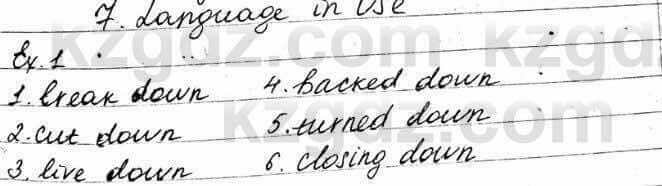 7. Language in Use
Ex. 1
1. break down 4. backed down
2. cut down 5. turned down
3. live down 6. closing down
kzgdz.com kzgdz
kzgdz.com